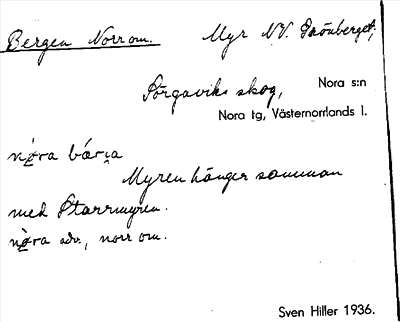 Bergen Norr om. Myr NV. Grönberget,
Sörgaviks skog, Nora s:n
Nora tg, Västernorrlands l.
bárịa
Myren hänger samman
med Starrmyren.
adv., norr om.
Sven Hiller 1936.